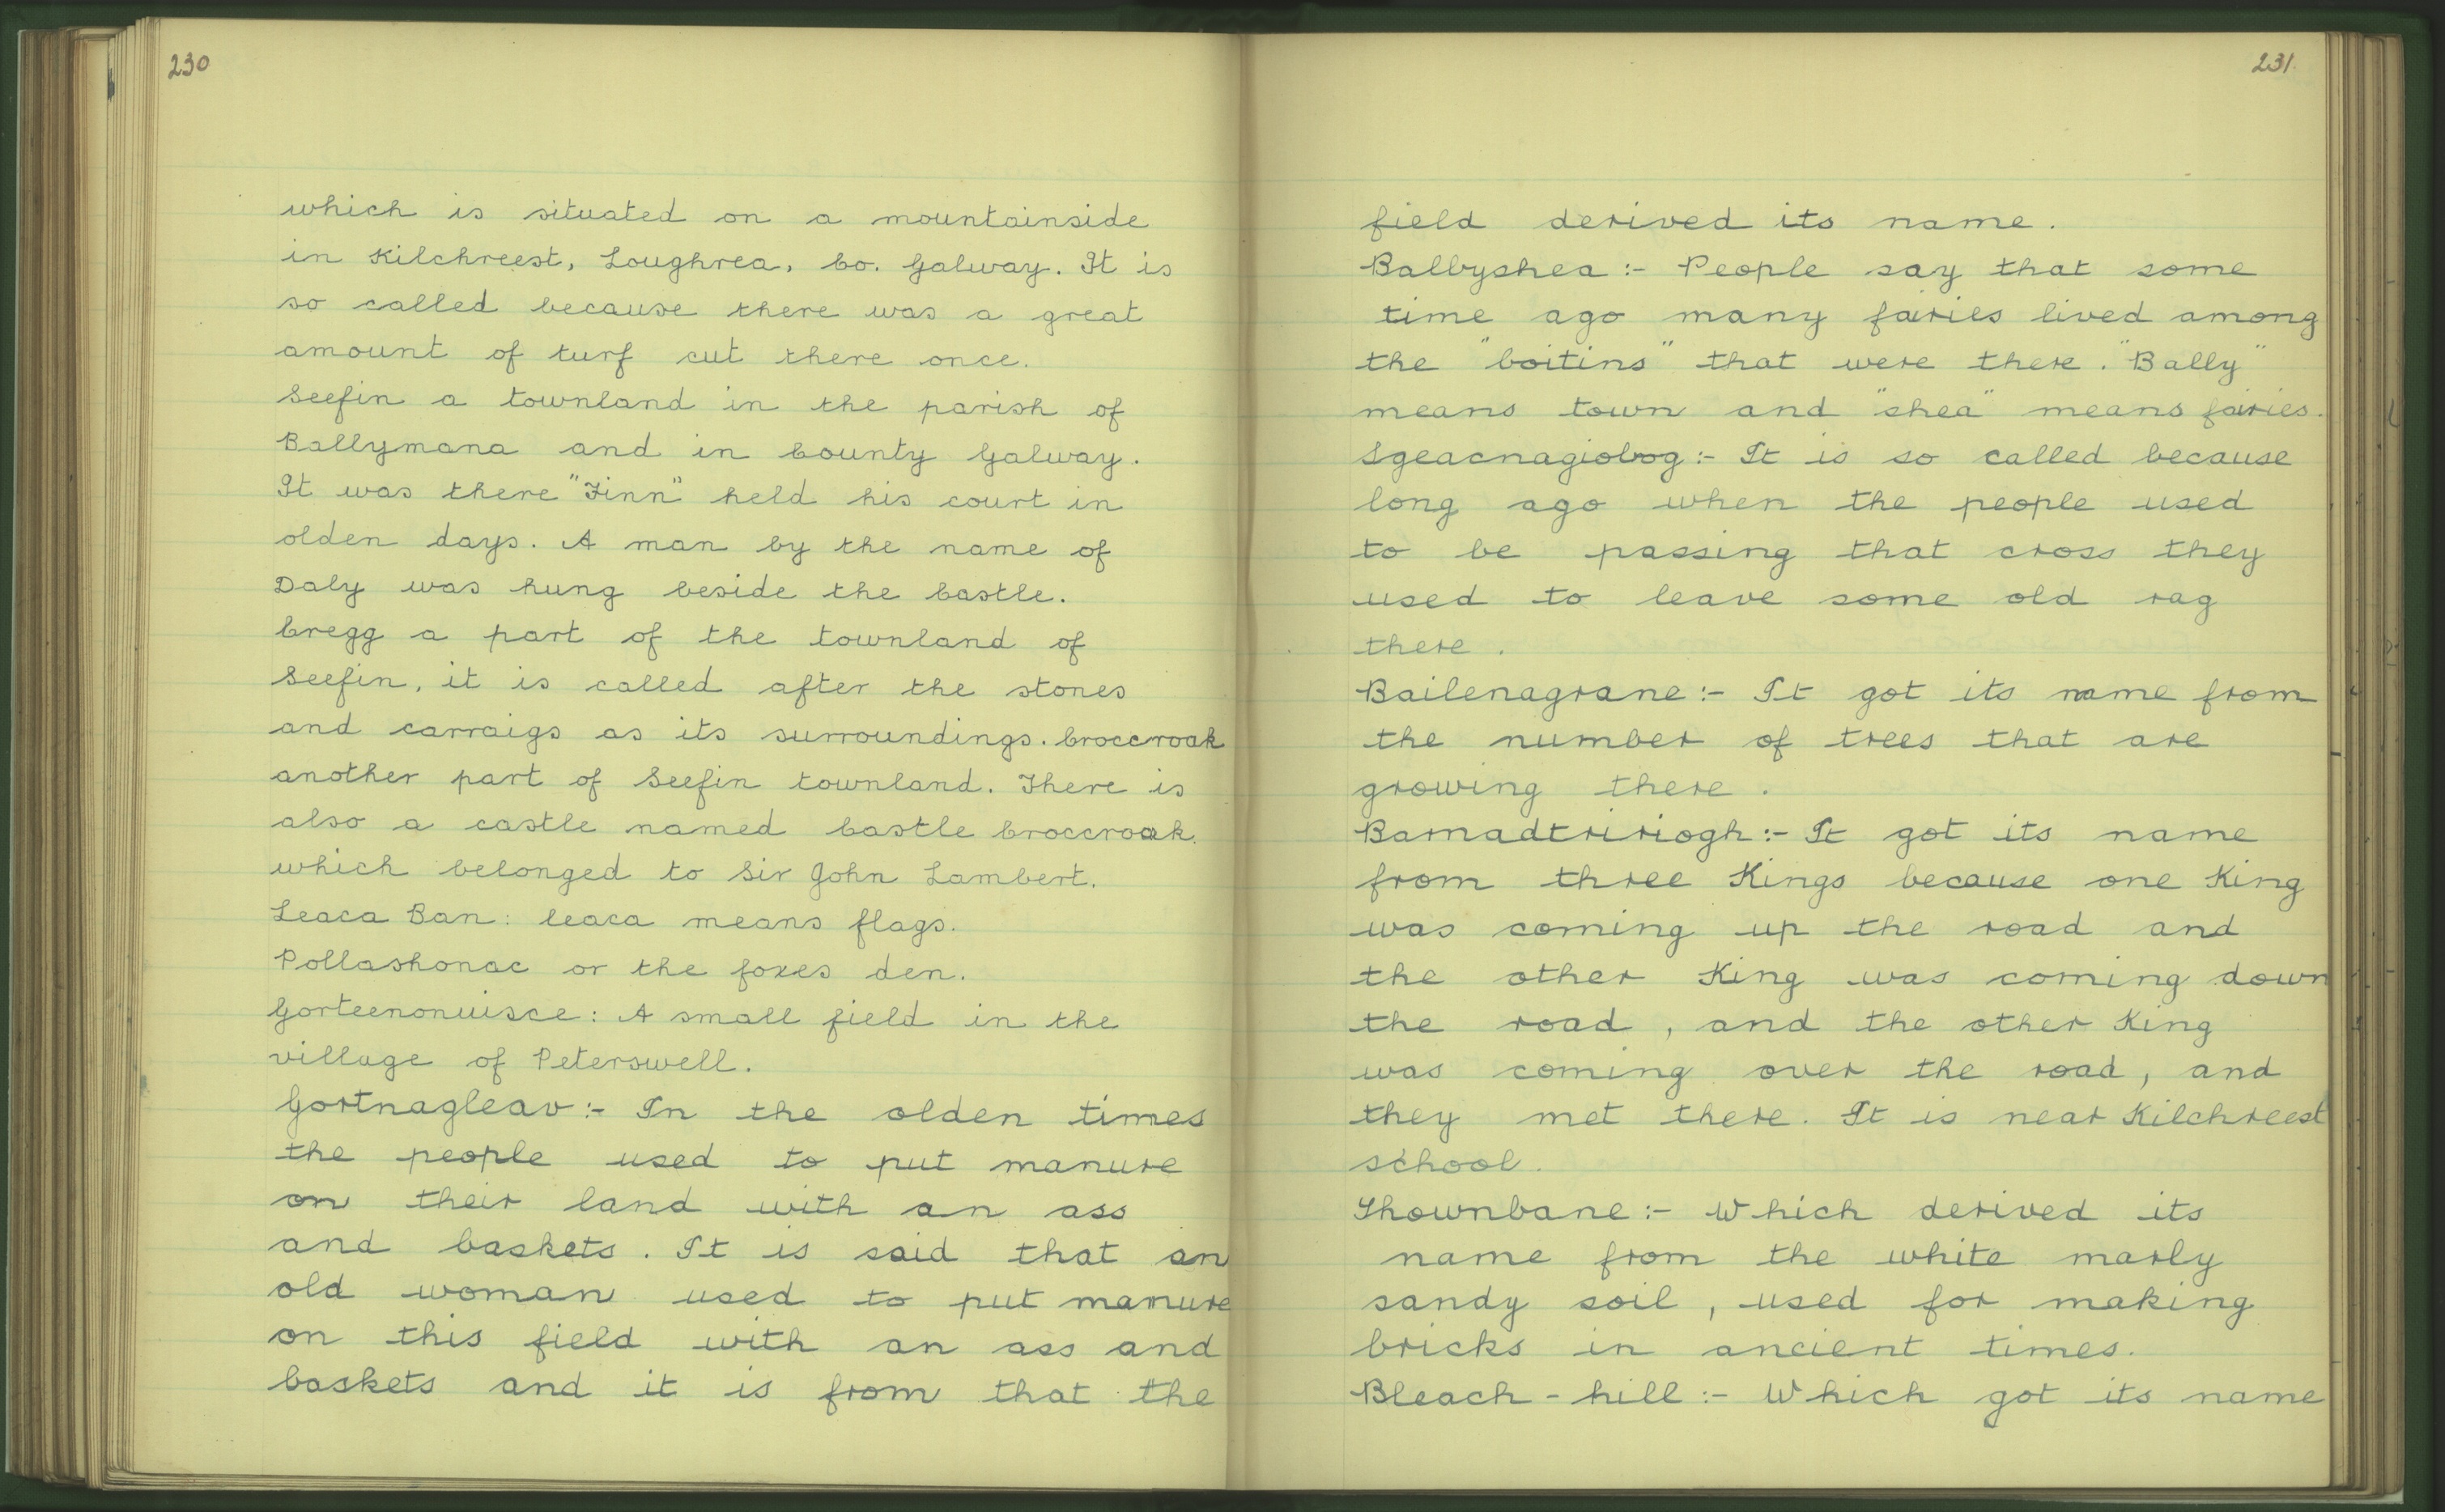 230
which is situated on a mountainside
in Kilchreest, Loughrea, Co. Galway. It is
so called because there was a great
amount of turf cut there once.
Seefin a townland in the parish of
Ballymana and in County Galway.
It was there "Finn" held his court in
olden days. A man by the name of
Daly was hung beside the Castle.
Cregg a part of the townland of
Seefin, it is called after the stones
and carraigs as its surroundings. Croccroak
another part of Seefin townland. There is
also a castle named Castle Croccroak.
which belonged to Sir John Lambert.
Leaca Ban: leaca means flags.
Pollashonac or the foxes den.
Gorteenonuisce: A small field in the
village of Peterswell.
Gortnagleav:- In the olden times
the people used to put manure
on their land with an ass
and baskets. It is said that an
old woman used to put manure
on this field with an ass and
baskets and it is from that the
231
field derived its name.
Ballyshea:- People say that some
time ago many fairies lived among
the "boitins" that were there. "Bally"
means town and "shea" means fairies.
Sgeacnagiobog:- It is so called because
long ago when the people used
to be passing that cross they
used to leave some old rag
there.
Bailenagrane:- It got its name from
the number of trees that are
growing there.
Barnadtririogh:- It got its name
from three Kings because one King
was coming up the road and
the other King was coming down
the road, and the other King
was coming over the road, and
they met there. It is near Kilchreest
school.
Thownbane:- Which derived its
name from the white marly
sandy soil, used for making
bricks in ancient times.
Bleach-hill:- Which got its name